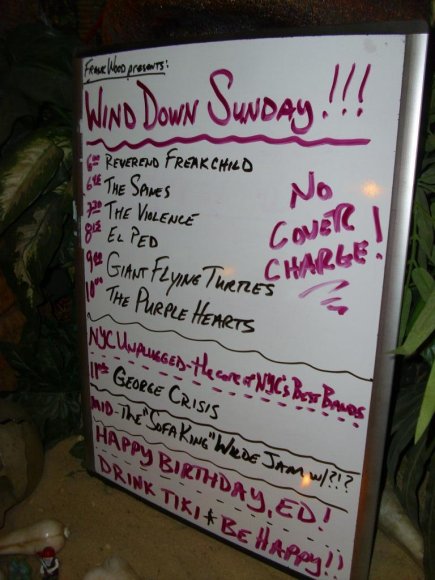 Frank Wood presents:
WIND DOWN SUNDAY!!!
6:00 REVEREND FREAKCHILD
6:45 THE SPINES
7:30 THE VIOLENCE
8:15 EL PED
9:00 GIANT FLYING TURTLES
10:00 THE PURPLE HEARTS
NO
COVER
CHARGE!
NYC UNPLUGGED - the core of NYC's Best Bands
GEORGE CRISIS
MID - THE "SOFA KING" WILDE JAM w/?!?
HAPPY BIRTHDAY, ED!
DRINK TIKI & BE HAPPY!!